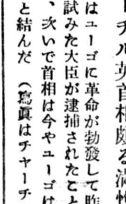 ーチル英首相頗る満
はユーゴに革命が勃發して昨
試みた大臣が逮捕されたこと
、次いで首相は今やユーゴは
と結んだ（寫眞はチャーチ